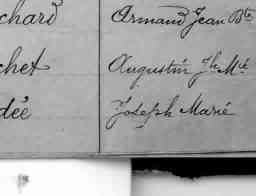 chard Armand Jean Bte
chet Augustin Jh Mie
dée Joseph Marie